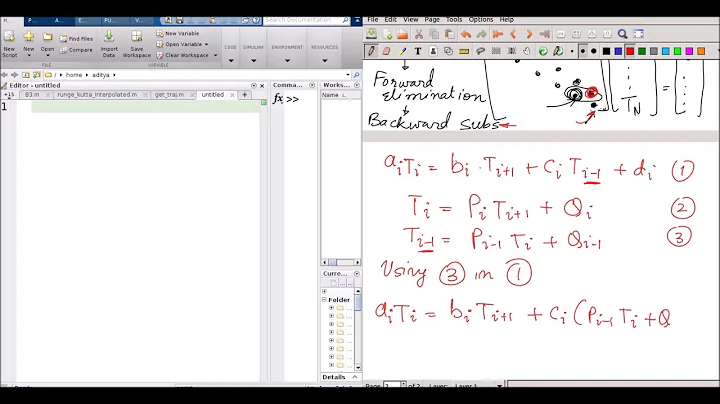 P... A... E... P... V...
Search Documentation
New Script
New
Open
Find Files
Compare
Import Data
Save Workspace
New Variable
Open Variable
Clear Workspace
CODE
SIMULINK
ENVIRONMENT
RESOURCES
FILE
VARIABLE
/ home aditya
Editor - untitled
+15 B3.m runge_kutta_interpolated.m get_traj.m untitled
1
Comma...
fx >>
Works...
Name
Curre...
Folder
Details
File Edit View Journal Tools Options Help
Forward
elimination
Backward subs
T_N = 
a_i T_i = b_i · T_{i+1} + c_i T_{i-1} + d_i ①
T_i = P_i T_{i+1} + Q_i ②
T_{i-1} = P_{i-1} T_i + Q_{i-1} ③
Using ③ in ①
a_i T_i = b_i T_{i+1} + c_i (P_{i-1} T_i + Q
Page 2 of 2 Layer: Layer 1